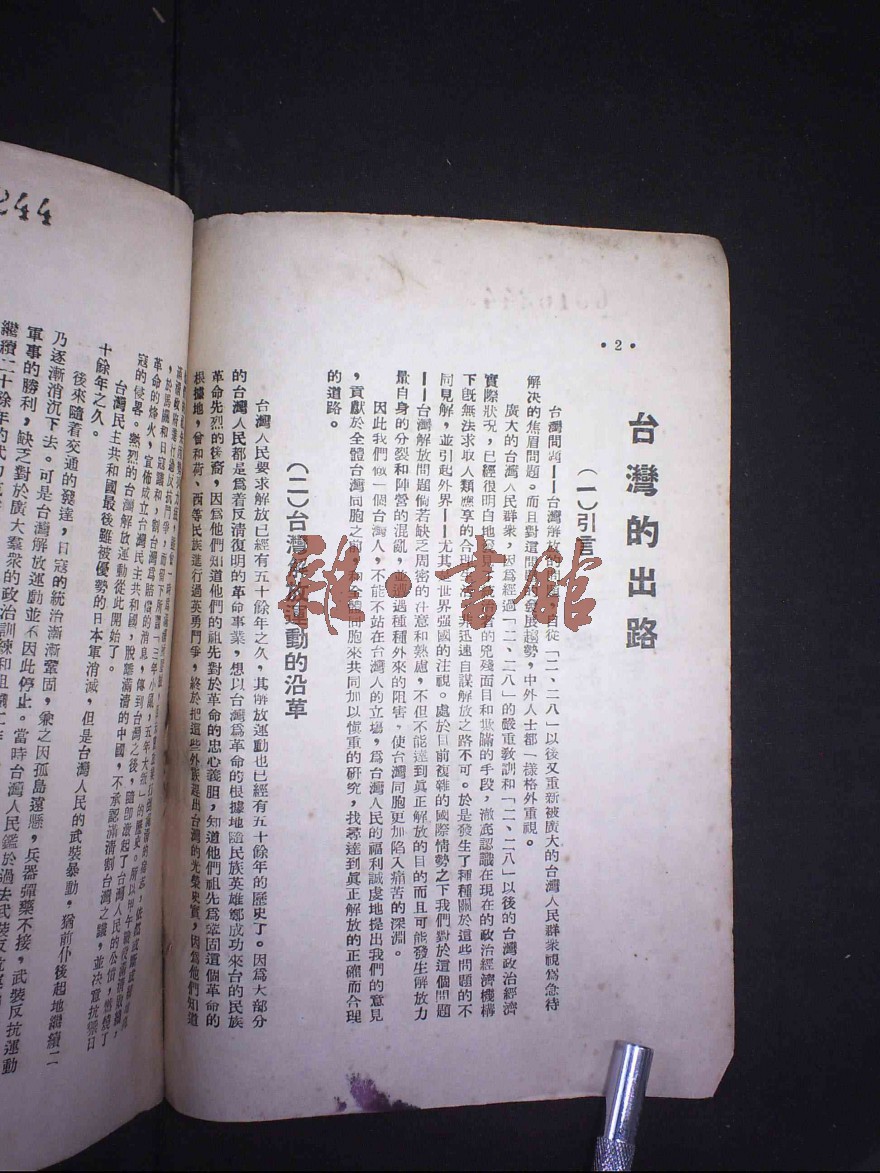 •2•
台灣的出路
(一)引言
台灣問題——台灣解放的問題自從「二、二八」以後又重新被廣大的台灣人民群衆視爲急待
解决的焦眉問題。而且對這問題的發展趨勢,中外人士都一樣格外重視。
廣大的台灣人民群衆,因爲經過「二、二八」的嚴重敎訓和「二、二八」以後的台灣政治經濟
實際狀况,已經很明白地的兇殘面目和欺瞞的手段,澈底認識在現在的政治經濟機構
下旣無法求取人類應享的合理非迅速自謀解放之路不可。於是發生了種種關於這些問題的不
同見解,並引起外界——尤其是世界強國的注視。處於目前複雜的國際情勢之下我們對於這個問題
——台灣解放問題倘若缺乏周密的注意和熟慮,不但不能達到眞正解放的目的而且可能發生解放力
量自身的分裂和陣營的混亂,並遭遇種種外來的阻害,使台灣同胞更加陷入痛苦的深淵。
因此我們做一個台灣人,不能不站在台灣人的立塲,爲台灣人民的福利誠虔地提出我們的意見
,貢獻於全體台灣同胞之前,和全體同胞來共同加以愼重的研究,找尋達到眞正解放的正確而合理
的道路。
(二)台灣解放運動的沿革
台灣人民要求解放已經有五十餘年之久,其解放運動也已經有五十餘年的歷史了。因爲大部分
的台灣人民都是爲着反清復明的革命事業,想以台灣爲革命的根據地隨民族英雄鄭成功來台的民族
革命先烈的後裔,因爲他們知道他們的祖先對於革命的忠心義胆,知道他們祖先爲鞏固這個革命的
根據地,曾和荷、西等民族進行過英勇鬥爭,終於把這些外族趕出台灣的光榮史實,因爲他們知道
244
革命的烽火,宣佈成立台灣民主共和國,脫離滿清的中國,不承認滿清割台灣之讓,並决意抗禦日
寇的侵畧。熱烈的台灣解放運動從此開始了。
台灣民主共和國最後雖被優勢的日本軍消滅,但是台灣人民的武裝暴動,猶前仆後起地繼續二
十餘年之久。
後來隨着交通的發達,日寇的統治漸漸鞏固,乘之因孤島遠懸,兵器彈藥不接,武裝反抗運動
乃逐漸消沉下去。可是台灣解放運動並不因此停止。當時台灣人民鑑於過去武裝反抗
軍事的勝利,缺乏對於廣大羣衆的政治訓練和組織工作
繼續二十餘年的武
雜·書館